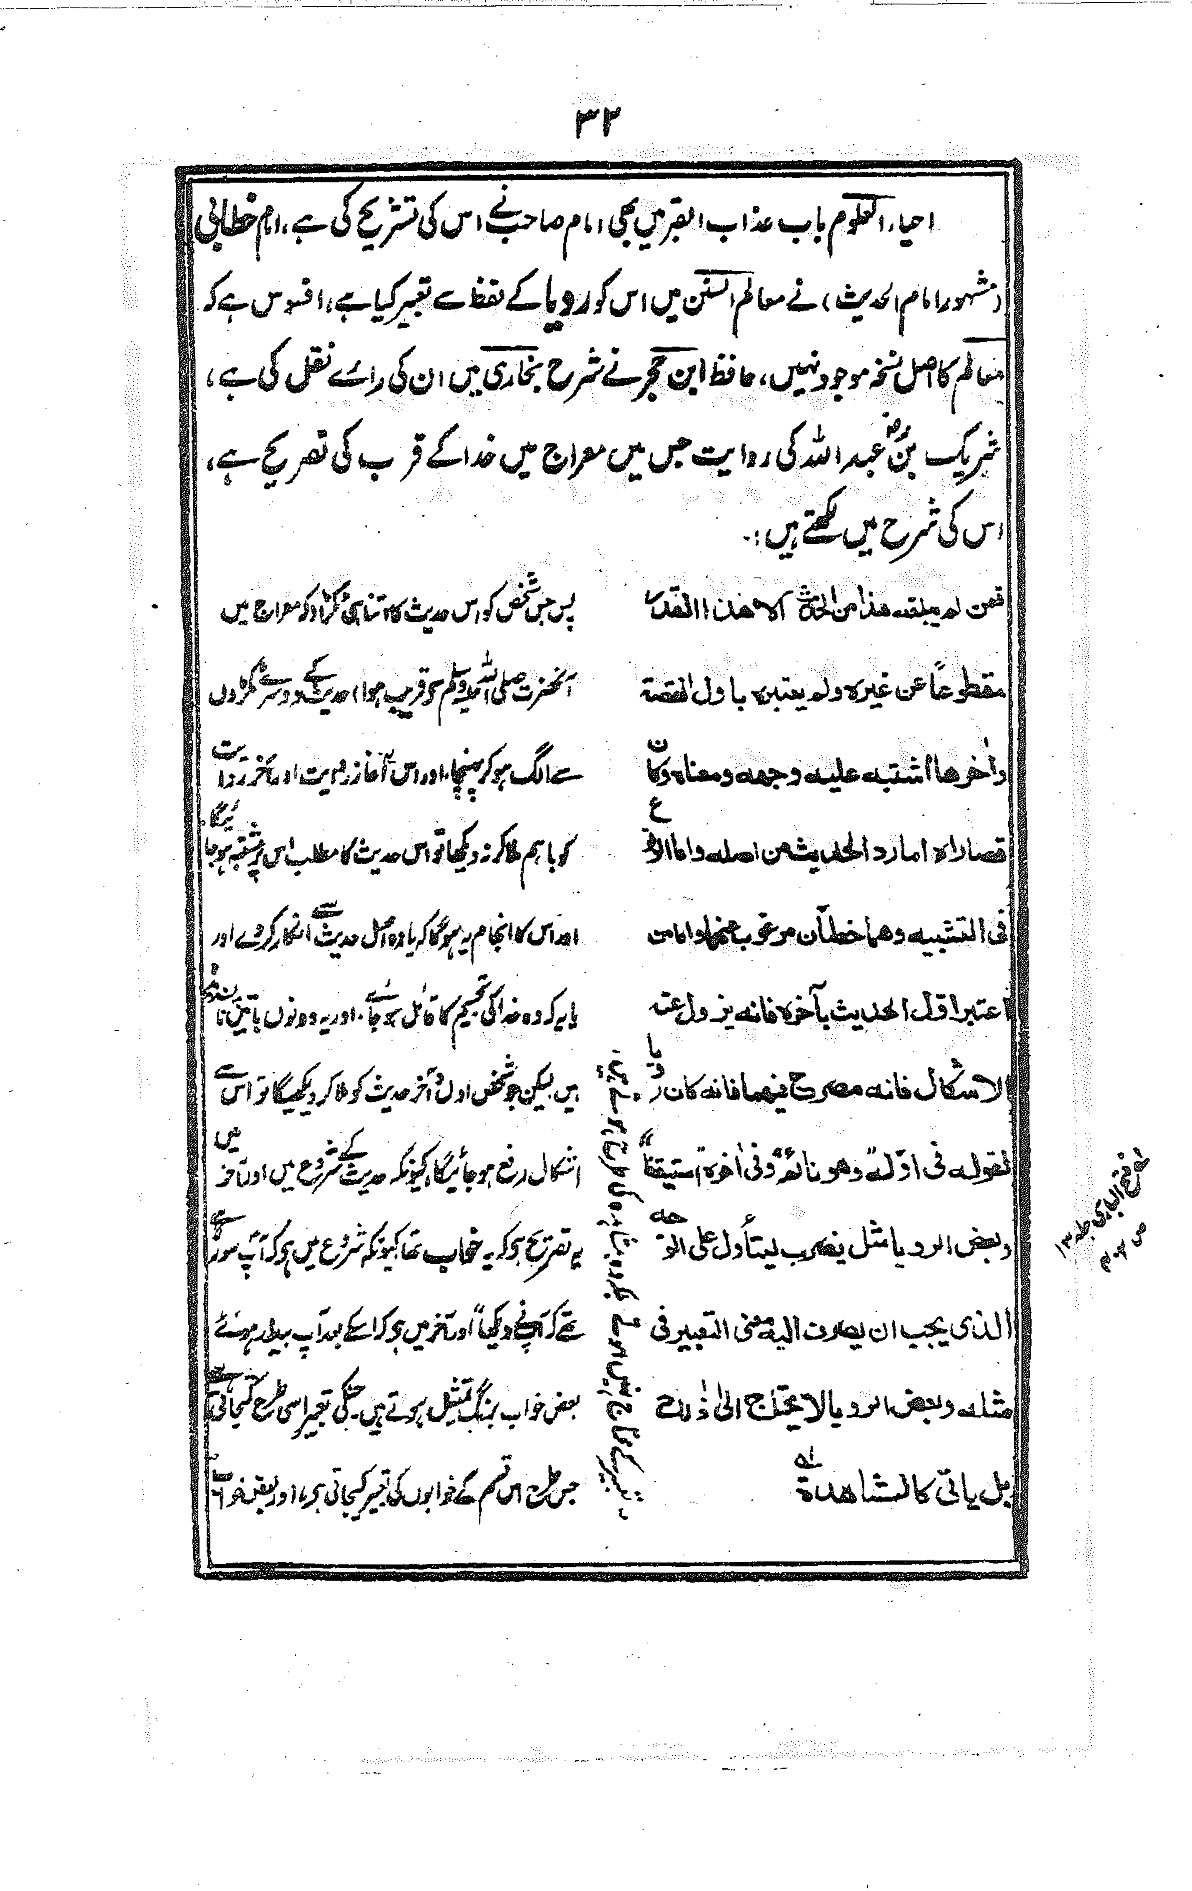 ۳۲
احیاء العلوم باب عذاب القبر میں بھی امام صاحب نے اس کی تشریح کی ہے، امام خطابی
(مشہور امام الحدیث) نے معالم السنن میں اس کو رویا کے لفظ سے تعبیر کیا ہے، افسوس ہے کہ
معالم کا اصل نسخہ موجود نہیں، حافظ ابن حجر نے شرح بخاری میں ان کی رائے نقل کی ہے،
شریک بن عبد اللہ کی روایت جس میں معراج میں خدا کے قرب کی تصریح ہے،
اس کی شرح میں لکھتے ہیں:۔
فمن لم يبلغه هذا من الحديث الا هذا القدر
مقطوعاً عن غيره ولم يعتبره باول القصة
واٰخرها اشتبه عليه وجهه ومعناه وكان
قصاراه اما رد الحديث من اصله واما الوقوع
فى التشبيه وهما خطآن مرغوب عنهما واما من
اعتبر اوّل الحديث بآخره فانه يزول عنه
الاشكال فانه مصرح فيهما فانه كان رويا
لقوله فى اوّله "وهو نائم" وفى اٰخره "استيقظ"
وبعض الرويا مثل يضرب ليتأول على الوجه
الذى يجب ان يصرف اليه معنى التعبير فى
مثله وبعض الرويا لا يحتاج الىٰ ذٰلك
بل ياتى كالمشاهدة لہ
پس جس شخص کو اس حدیث کا اتنا ہی ٹکڑا (کہ معراج میں
آنحضرت صلی اللہ علیہ وسلم سے قریب ہوا) حدیث کے دوسرے ٹکڑوں
سے الگ ہو کر پہنچا، اور اس آغاز روایت اور آخر روایت
کو باہم ملا کر نہ دیکھا تو اس حدیث کا مطلب اس پر مشتبہ ہو جائیگا
اور اس کا انجام یہ ہوگا کہ یا وہ اصل حدیث سے انکار کر دے اور
یا یہ کہ وہ خدا کی تجسیم کا قائل ہو جائے، اور یہ دونوں باتیں ناپسندیدہ
ہیں لیکن جو شخص اول و آخر حدیث کو ملا کر دیکھیگا تو اس سے
اشکال رفع ہو جائیگا، کیونکہ حدیث کے شروع میں اور آخر میں
یہ تصریح ہے کہ یہ خواب تھا کیونکہ شروع میں ہے کہ آپ سو رہے
تھے کہ آپنے دیکھا" اور آخر میں ہے کہ اسکے بعد آپ بیدار ہوئے
بعض خواب برنگ تمثیل ہوتے ہیں۔ جنکی تعبیر اسی طرح کیجاتی ہے
جس طرح اس قسم کے خوابوں کی تعبیر کیجاتی ہے، اور بعض خواب
تعبیر کے محتاج نہیں ہوتے بلکہ وہ مشاہدہ کی طرح ہوتے ہیں،
لہ فتح الباری جلد ۱۳
ص ۴۰۲